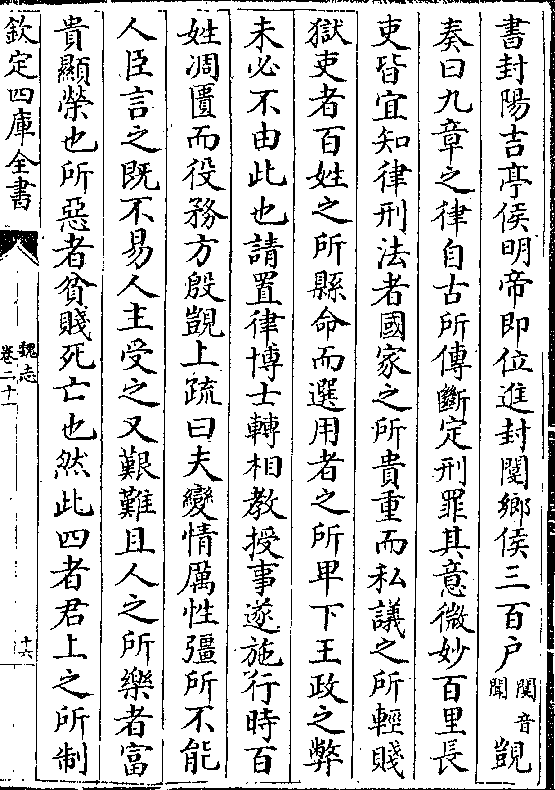 書封陽吉亭侯明帝即位進封閺鄉侯三百户閺音聞覬
奏曰九章之律自古所傳斷定刑罪其意微妙百里長
吏皆宜知律刑法者國家之所貴重而私議之所輕賤
獄吏者百姓之所縣命而選用者之所卑下王政之弊
未必不由此也請置律博士轉相教授事遂施行時百
姓凋匱而役務方殷覬上疏曰夫變情厲性彊所不能
人臣言之既不易人主受之又艱難且人之所樂者富
貴顯榮也所惡者貧賤死亡也然此四者君上之所制
欽定四庫全書
魏志
卷二十一
十六